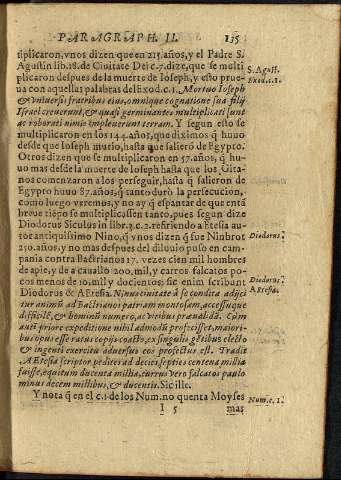 PARAGRAPH. II. 135
tiplicaron, vnos dizen que en 215. años, y el Padre S.
Agustin lib. 18. de Ciuitate Dei c. 7. dize, que se multi
plicaron despues de la muerte de Ioseph, y esto prue
ua con aquellas palabras del Exod. c. 1. Mortuo Ioseph
& vniuersis fratribus eius, omnique cognatione sua filij
Israel creuerunt, & quasi germinantes multiplicati sunt
ac roborati nimis impleuerunt terram. Y segun esto se
multiplicaron en los 144. años, que diximos q̃ huuo
desde que Ioseph murio, hasta que salierõ de Egypto.
Otros dizen que se multiplicaron en 57. años, q̃ hu-
uo mas desde la muerte de Ioseph hasta que los Gita-
nos comenzaron a los perseguir, hasta q̃ salieron de
Egypto huuo 87. años, q̃ tanto durò la persecucion,
como luego veremos, y no ay q̃ espantar de que entã
breue tiẽpo se multiplicassen tanto, pues segun dize
Diodorus Siculus in lib. 3. c. 2. refiriendo a Etesia au-
tor antiquissimo Nino, q̃ vnos dizen q̃ fue Ninbrot
250. años, y no mas despues del diluuio puso en cam-
pania contra Bactrianos 17. vezes cien mil hombres
de a pie, y de a cauallo 200. mil, y carros falcatos po-
cos menos de 10. mil y docientos; sic enim scribunt
Diodorus & AEtesia. Ninus ciuitate à se condita adijci
tur animũ ad Bactrianos patriam montosam, accessuque
difficilẽ, & hominũ numero, ac viribus præualidã. Cum
autẽ priore expeditione nihil admodũ profecisset, maiori
bus opus esse ratus copijs coacto, ex singulis gẽtibus electo
& ingenti exercitu aduersus eos profectus est. Tradit
AEtesia scriptor, pedites ad decies septies centena millia
fuisse, equitum ducenta millia, currus vero falcatos paulo
minus decem millibus, & ducentis. Sic ille.
Y nota q̃ en el c. 1. de los Num. no quenta Moyses
I 5 mas
S. Agust.
Exod. c. 1.
Diodorus.
Diodorus.
AEtesia.
Num. c. 1.